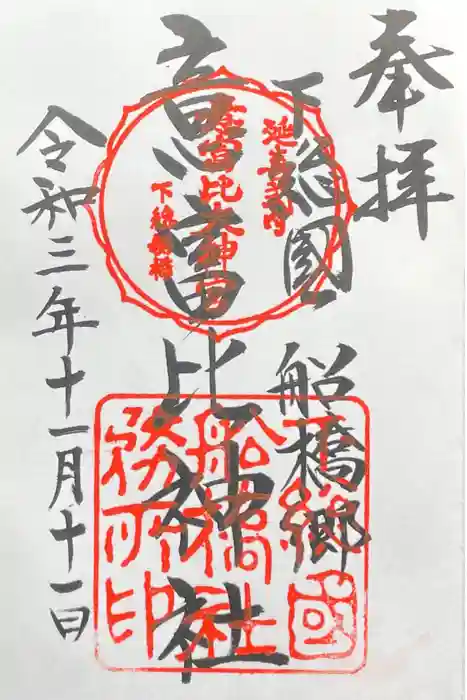 奉拝
下総國 船橋郷
意富比神社
令和三年十一月十一日
延喜式内
意富比大神宮
下総船橋
下総國
船橋神社
務所印